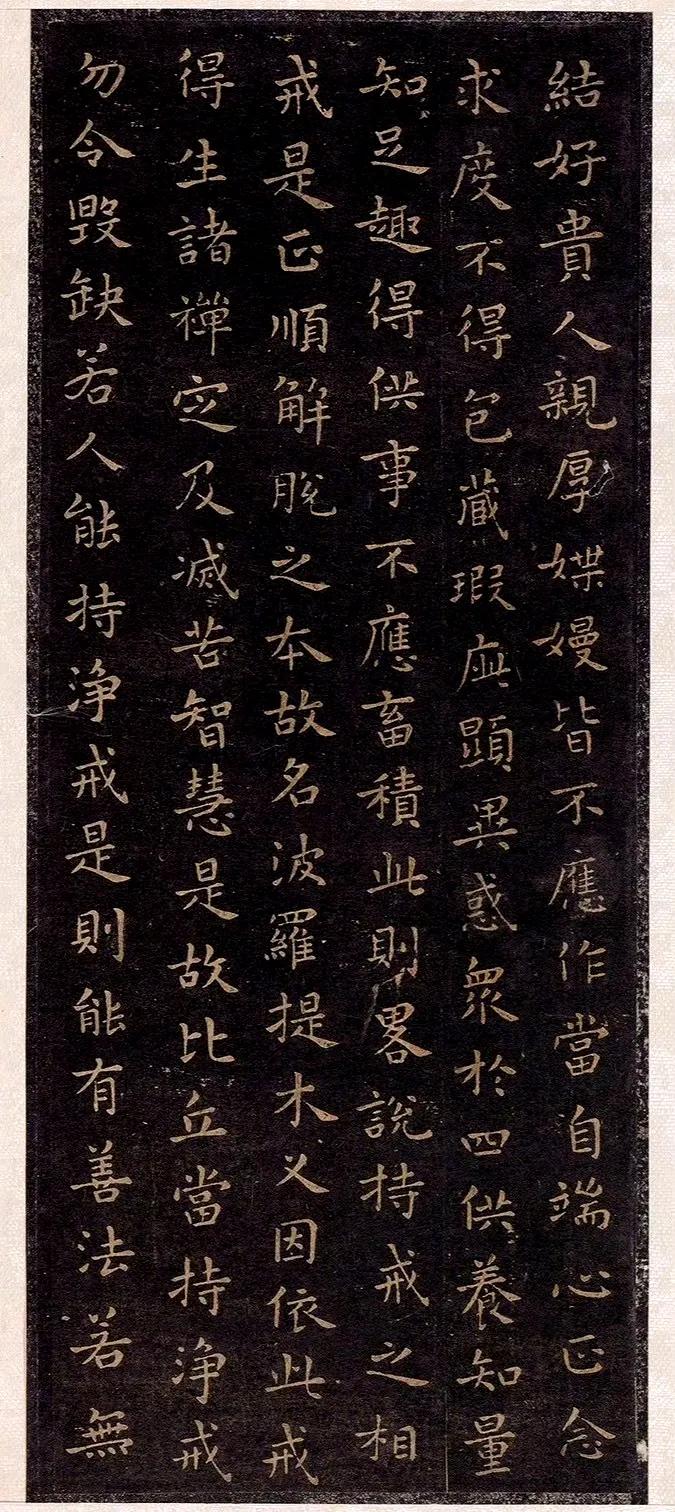 結好貴人親厚媟嫚皆不應作當自端心正念
求度不得包藏瑕疵顯異惑衆於四供養知量
知足趣得供事不應畜積此則畧說持戒之相
戒是正順解脫之本故名波羅提木叉因依此戒
得生諸禪定及滅苦智慧是故比丘當持淨戒
勿令毀缺若人能持淨戒是則能有善法若無